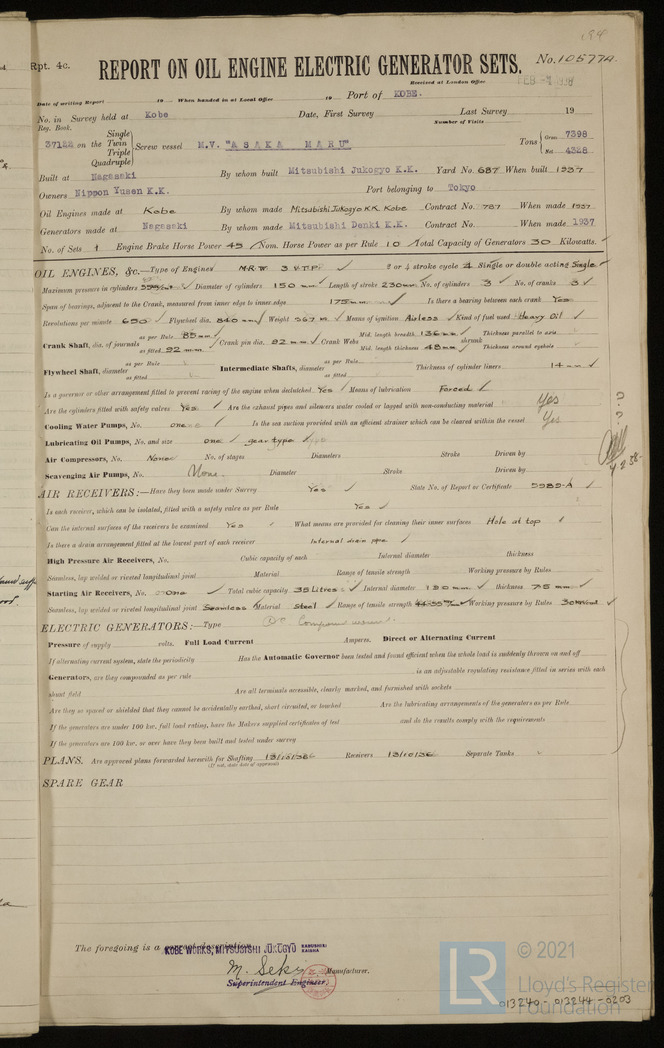 194
Rpt. 4c.
REPORT ON OIL ENGINE ELECTRIC GENERATOR SETS.
No. 105774
Received at London Office
Date of writing Report 19 When handed in at Local Office 19 Port of KOBE.
No. in Survey held at Kobe Date, First Survey Last Survey 19
Reg. Book. Number of Visits
37122 on the Single Twin Triple Quadruple Screw vessel M.V. "ASAKA MARU" Tons Gross 7398 Net 4328
Built at Nagasaki By whom built Mitsubishi Jukogyo K.K. Yard No. 687 When built 1937
Owners Nippon Yusen K.K. Port belonging to Tokyo
Oil Engines made at Kobe By whom made Mitsubishi Jukogyo K.K. Kobe Contract No. 787 When made 1937
Generators made at Nagasaki By whom made Mitsubishi Denki K.K. Contract No. When made 1937
No. of Sets 1 Engine Brake Horse Power 45 Nom. Horse Power as per Rule 10 Total Capacity of Generators 30 Kilowatts.
OIL ENGINES, &c.—Type of Engines 2 or 4 stroke cycle 4 Single or double acting Single
Maximum pressure in cylinders Diameter of cylinders 150 mm Length of stroke 230mm No. of cylinders 3 No. of cranks 3
Span of bearings, adjacent to the Crank, measured from inner edge to inner edge 175mm Is there a bearing between each crank Yes
Revolutions per minute 650 Flywheel dia. 840 mm Weight Means of ignition Airless Kind of fuel used Heavy Oil
Crank Shaft, dia. of journals as per Rule 85 mm as fitted 92 mm Crank pin dia. 82 mm Crank Webs Mid. length breadth 136 mm Mid. length thickness 48mm shrunk Thickness parallel to axis Thickness around eyehole
Flywheel Shaft, diameter as per Rule as fitted Intermediate Shafts, diameter as per Rule as fitted Thickness of cylinder liners 14 mm
Is a governor or other arrangement fitted to prevent racing of the engine when declutched Yes Means of lubrication Forced
Are the cylinders fitted with safety valves Yes Are the exhaust pipes and silencers water cooled or lagged with non-conducting material Yes
Cooling Water Pumps, No. one Is the sea suction provided with an efficient strainer which can be cleared within the vessel Yes
Lubricating Oil Pumps, No. and size one gear type
Air Compressors, No. None No. of stages Diameters Stroke Driven by
Scavenging Air Pumps, No. None. Diameter Stroke Driven by
AIR RECEIVERS:—Have they been made under Survey Yes State No. of Report or Certificate 5989-A
Is each receiver, which can be isolated, fitted with a safety valve as per Rule Yes
Can the internal surfaces of the receivers be examined Yes What means are provided for cleaning their inner surfaces Hole at top
Is there a drain arrangement fitted at the lowest part of each receiver Internal drain pipe
High Pressure Air Receivers, No. Cubic capacity of each Internal diameter thickness
Seamless, lap welded or riveted longitudinal joint Material Range of tensile strength Working pressure by Rules
Starting Air Receivers, No. One Total cubic capacity 35 Litres Internal diameter thickness 7.5 mm
Seamless, lap welded or riveted longitudinal joint Seamless Material Steel Range of tensile strength Working pressure by Rules
ELECTRIC GENERATORS:—Type DC Compound wound.
Pressure of supply volts. Full Load Current Amperes. Direct or Alternating Current
If alternating current system, state the periodicity Has the Automatic Governor been tested and found efficient when the whole load is suddenly thrown on and off
Generators, are they compounded as per rule is an adjustable regulating resistance fitted in series with each
shunt field Are all terminals accessible, clearly marked, and furnished with sockets
Are they so spaced or shielded that they cannot be accidentally earthed, short circuited, or touched Are the lubricating arrangements of the generators as per Rule
If the generators are under 100 kw. full load rating, have the Makers supplied certificates of test and do the results comply with the requirements
If the generators are 100 kw. or over have they been built and tested under survey
PLANS. Are approved plans forwarded herewith for Shafting 13/10/36 Receivers 13/10/36 Separate Tanks
(If not, state date of approval)
SPARE GEAR
The foregoing is a correct description
KOBE WORKS, MITSUBISHI JUKOGYO KABUSHIKI KAISHA
M. Seki Manufacturer.
Superintendent Engineer.
LR
© 2021
Lloyd's Register
Foundation
013240-013244-0203